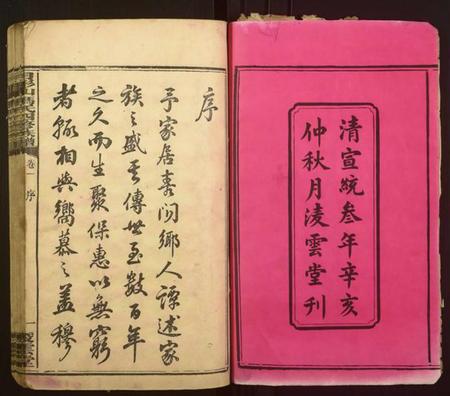 清宣統叁年辛亥
仲秋月淩雲堂刊
序
予家居喜问鄉人譚述家
族之盛其傳世至數百年
之久而生聚保惠以無窮
者輒相與嚮慕之蓋穆
卷一 序